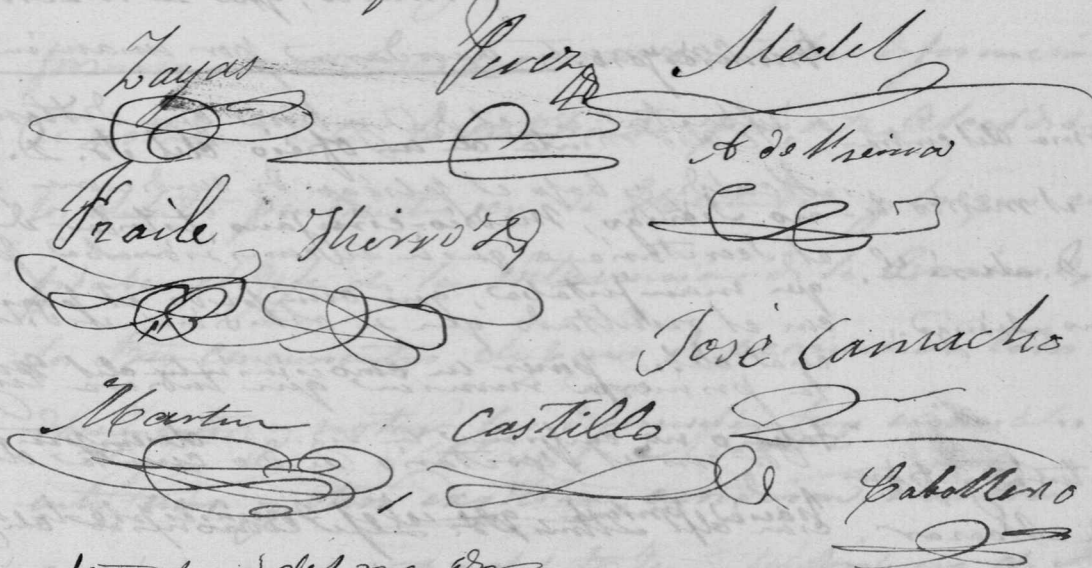 Zayas Perez Medel
A de
Fraile
José Camacho
Martin Castillo
Caballero